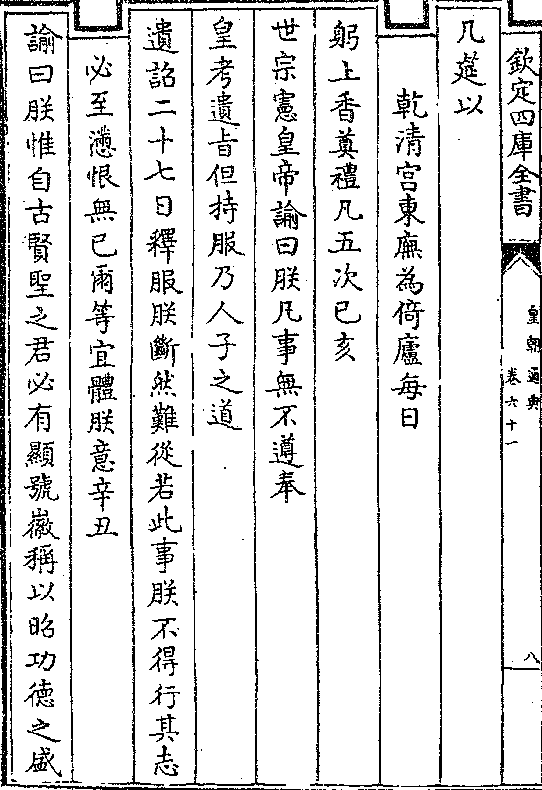 欽定四庫全書
皇朝通典
卷六十一
八
几筵以
乾清宫東廡為倚廬每日
躬上香奠禮凡五次已亥
世宗憲皇帝諭曰朕凡事無不遵奉
皇考遺㫖但持服乃人子之道
遺詔二十七日釋服朕斷然難從若此事朕不得行其志
必至懣恨無已爾等宜體朕意辛丑
諭曰朕惟自古賢聖之君必有顯號徽稱以昭功德之盛